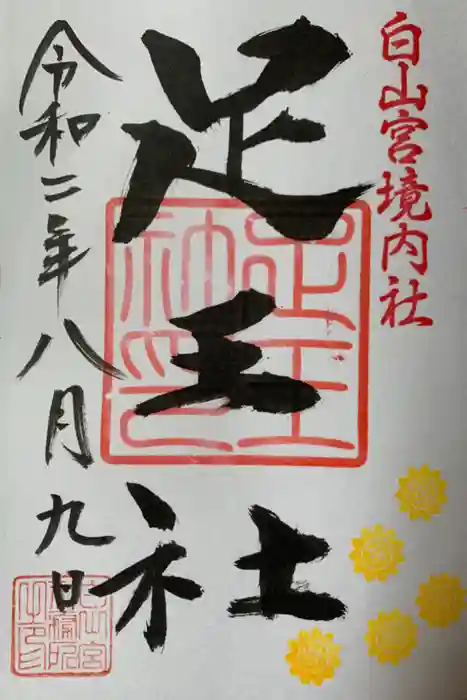 白山宮境内社
足王社
令和二年八月九日
足王社印